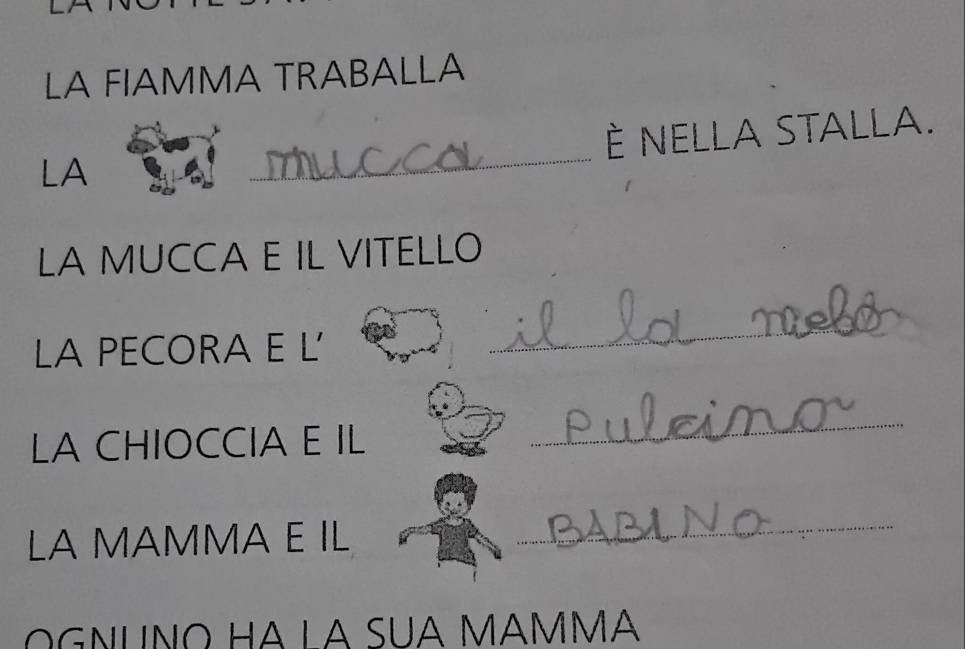 LA FIAMMA TRABALLA
LA mucca È NELLA STALLA.
LA MUCCA E IL VITELLO
LA PECORA E L' il la
LA CHIOCCIA E IL Pulcino
LA MAMMA E IL BABINO
OGNUNO HA LA SUA MAMMA